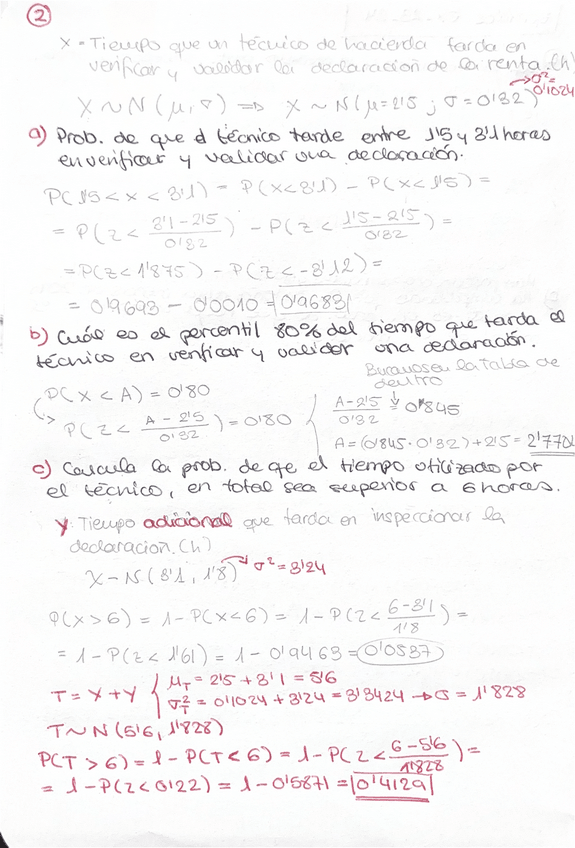 ②
X = Tiempo que un técnico de hacienda tarda en
verificar y validar la declaración de la renta.(h)
X ~ N(μ, σ) ⇒ X ~ N(μ=2'5 ; σ=0'32) → σ²= 0'1024
a) Prob. de que el técnico tarde entre 1'5 y 3'1 horas
en verificar y validar una declaración.
P(1'5 < x < 3'1) = P(x<3'1) - P(x<1'5) =
= P(z < (3'1-2'5)/0'32) - P(z < (1'5-2'5)/0'32) =
= P(z<1'875) - P(z<-3'12) =
= 0'9693 - 0'0010 = 0'9683
b) Cuál es el percentil 80% del tiempo que tarda el
técnico en verificar y validar una declaración.
Buscamos en la Tabla de
dentro
P(X < A) = 0'80
P(z < (A-2'5)/0'32) = 0'80
(A-2'5)/0'32 = 0'845
A = (0'845 · 0'32) + 2'5 = 2'7704
c) Calcula la prob. de qe el tiempo utilizado por
el técnico, en total sea superior a 6 horas.
Y: Tiempo adicional que tarda en inspeccionar la
declaración.(h)
X ~ N(3'1, 1'8) → σ² = 3'24
P(x>6) = 1 - P(x<6) = 1 - P(z < (6-3'1)/1'8) =
= 1 - P(z < 1'61) = 1 - 0'9463 = 0'0537
T = X + Y { μT = 2'5 + 3'1 = 5'6
σ²T = 0'1024 + 3'24 = 3'3424 → σ = 1'828
T ~ N(5'6, 1'828)
P(T > 6) = 1 - P(T < 6) = 1 - P(z < (6-5'6)/1'828) =
= 1 - P(z<0'22) = 1 - 0'5871 = 0'4129